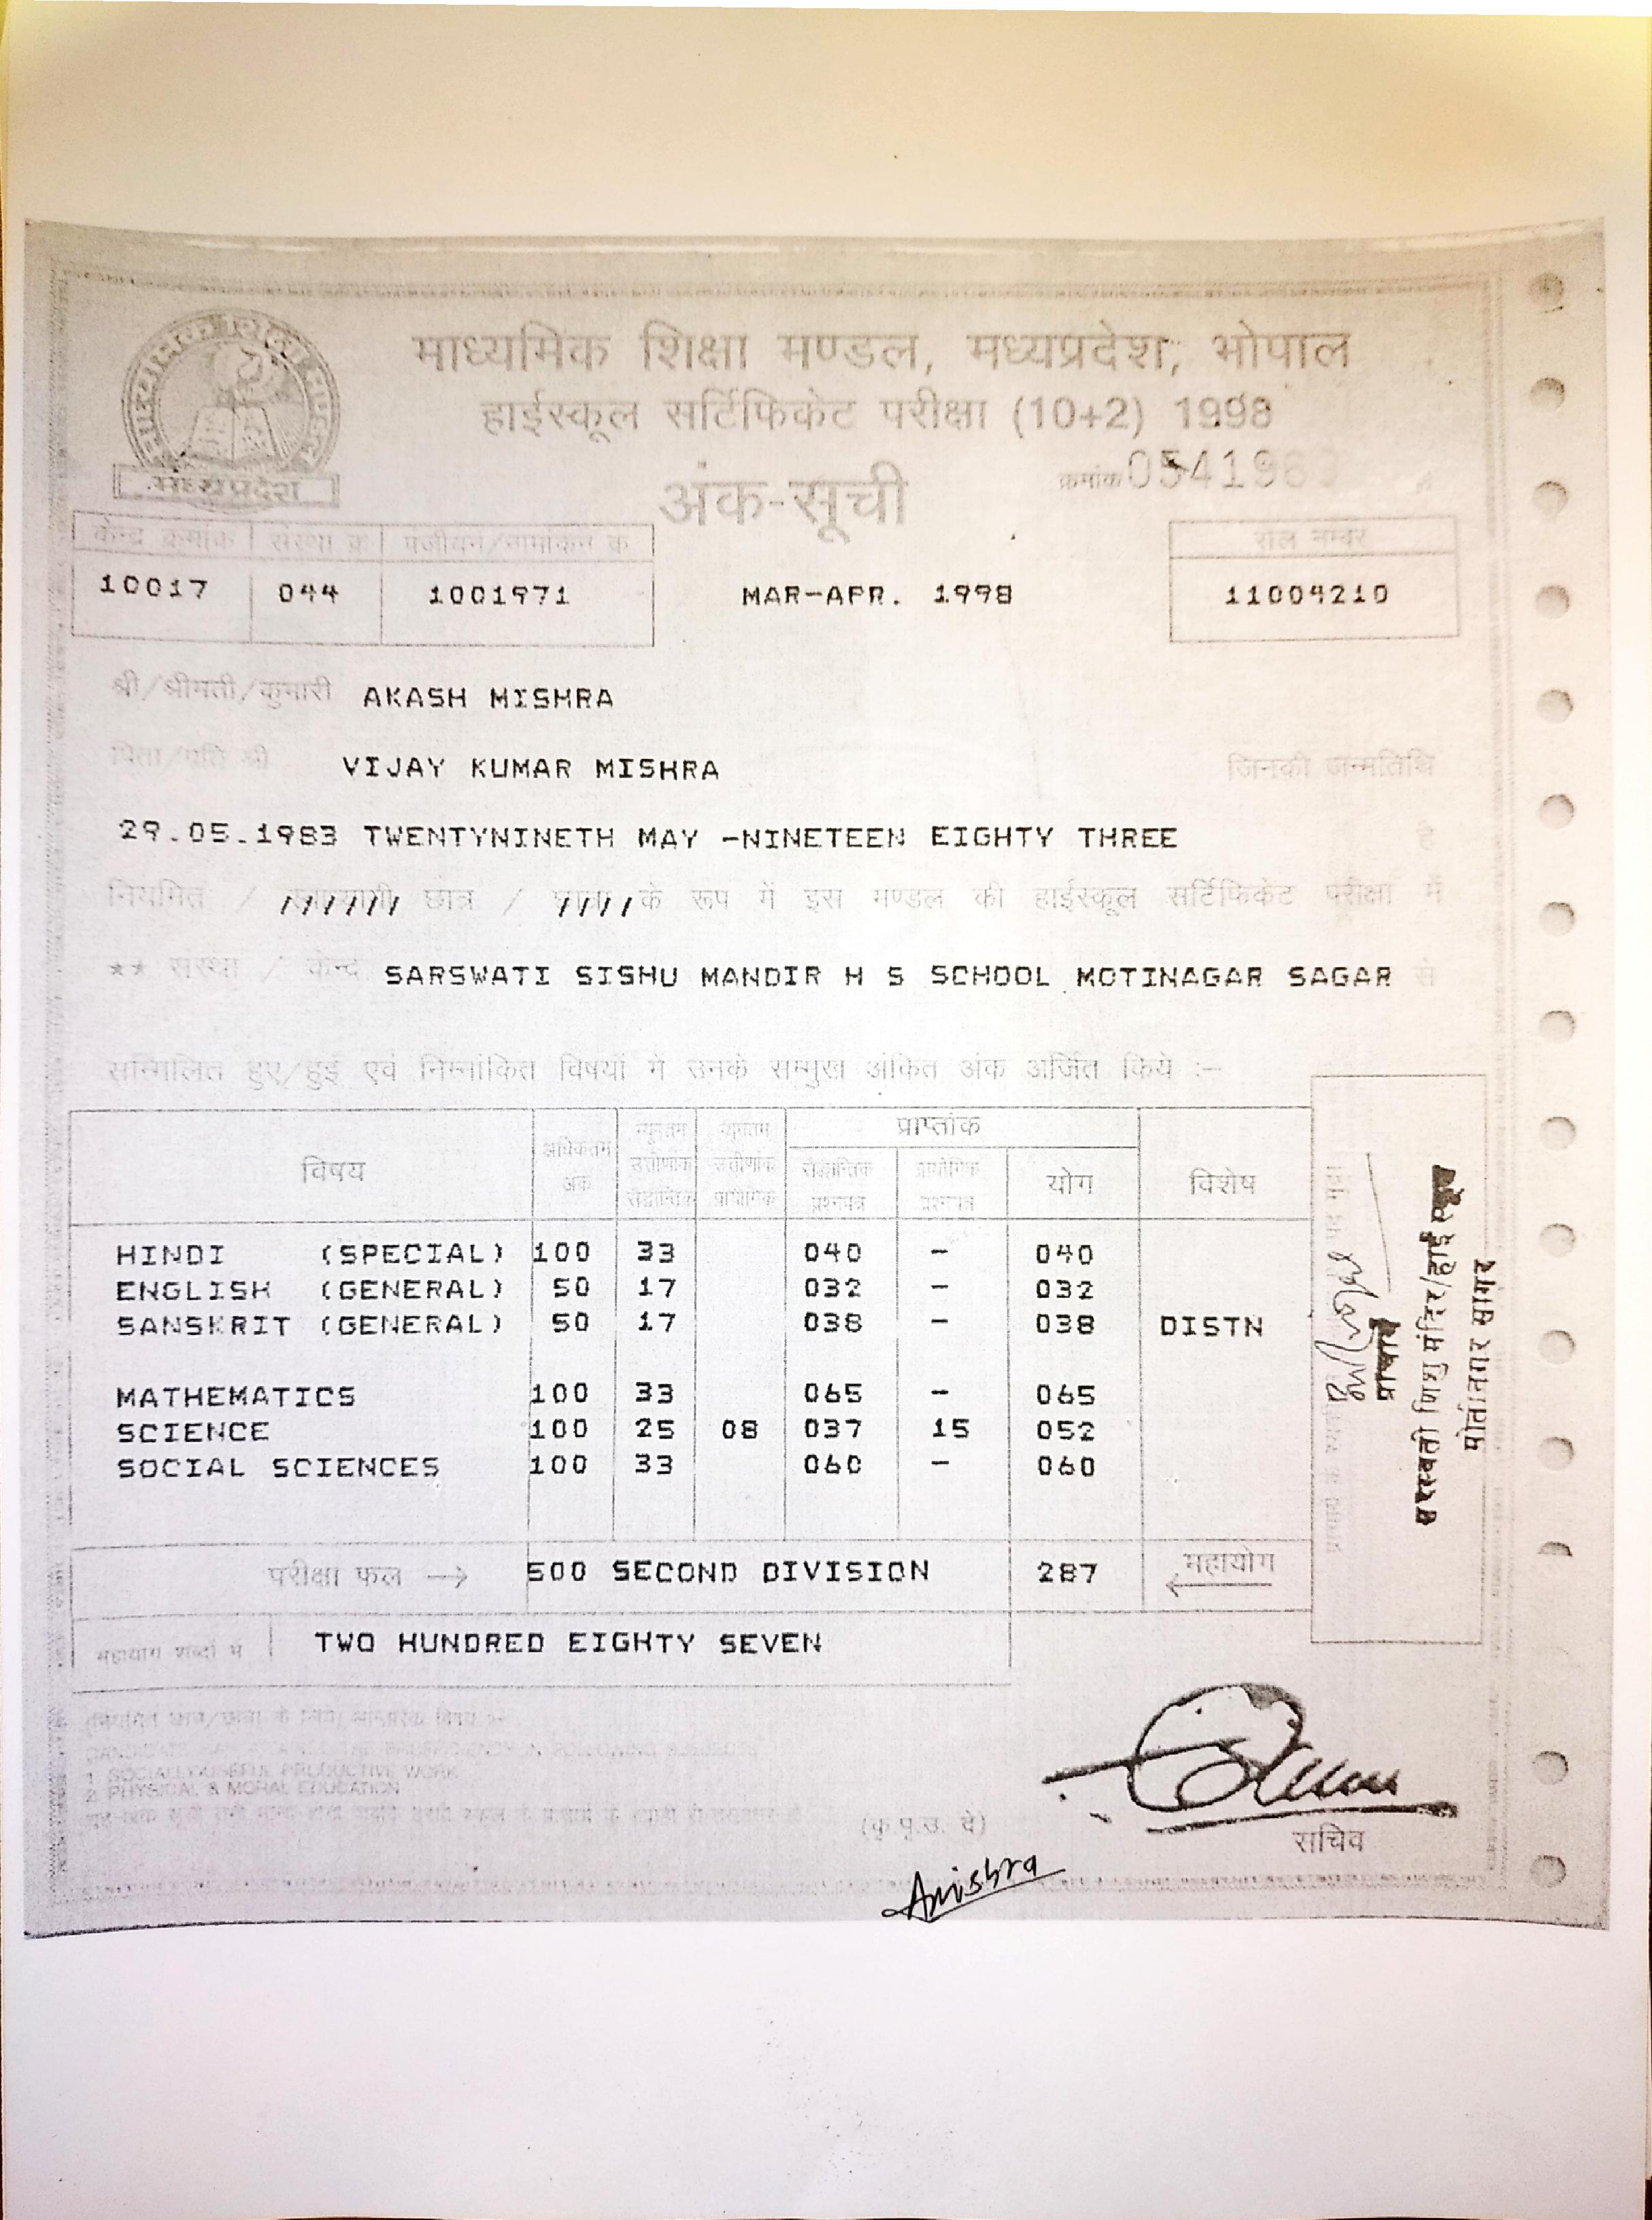 माध्यमिक शिक्षा मण्डल, मध्यप्रदेश, भोपाल
हाईस्कूल सर्टिफिकेट परीक्षा (10+2) 1998
मध्यप्रदेश
क्रमांक
अंक-सूची
केन्द्र क्रमांक संस्था क्र पंजीयन/नामांकन क्र रोल नम्बर
10017 044 1001971 MAR-APR. 1998 11004210
श्री/श्रीमती/कुमारी AKASH MISHRA
पिता/पति श्री VIJAY KUMAR MISHRA जिनकी जन्मतिथि
29.05.1983 TWENTYNINETH MAY -NINETEEN EIGHTY THREE है
नियमित / स्वाध्यायी छात्र / छात्रा के रूप में इस मण्डल की हाईस्कूल सर्टिफिकेट परीक्षा में
** संस्था / केन्द्र SARSWATI SISHU MANDIR H S SCHOOL MOTINAGAR SAGAR से
सम्मिलित हुए/हुई एवं निम्नांकित विषयों में उनके सम्मुख अंकित अंक अर्जित किये :-
विषय अधिकतम अंक न्यूनतम उत्तीर्णांक सैद्धान्तिक न्यूनतम उत्तीर्णांक प्रायोगिक प्राप्तांक विशेष
सैद्धान्तिक प्रश्नपत्र प्रायोगिक प्रश्नपत्र योग
HINDI (SPECIAL) 100 33 040 - 040
ENGLISH (GENERAL) 50 17 032 - 032
SANSKRIT (GENERAL) 50 17 038 - 038 DISTN
MATHEMATICS 100 33 065 - 065
SCIENCE 100 25 08 037 15 052
SOCIAL SCIENCES 100 33 060 - 060
परीक्षा फल → 500 SECOND DIVISION 287 महायोग ←
महायोग शब्दों में TWO HUNDRED EIGHTY SEVEN
1. SOCIALLY USEFUL PRODUCTIVE WORK
2. PHYSICAL & MORAL EDUCATION
(कृ.पृ.उ. दे)
सचिव
Amishra
मोतीनगर सागर